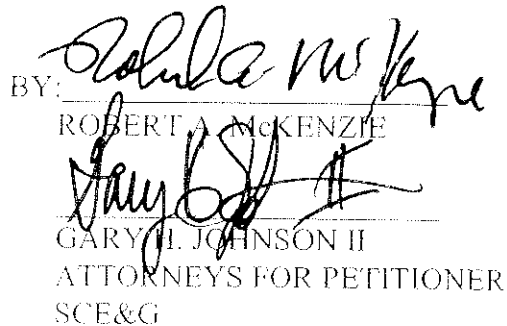 BY: Robert A McKenzie
ROBERT A. McKENZIE
GARY H. JOHNSON II
ATTORNEYS FOR PETITIONER
SCE&G